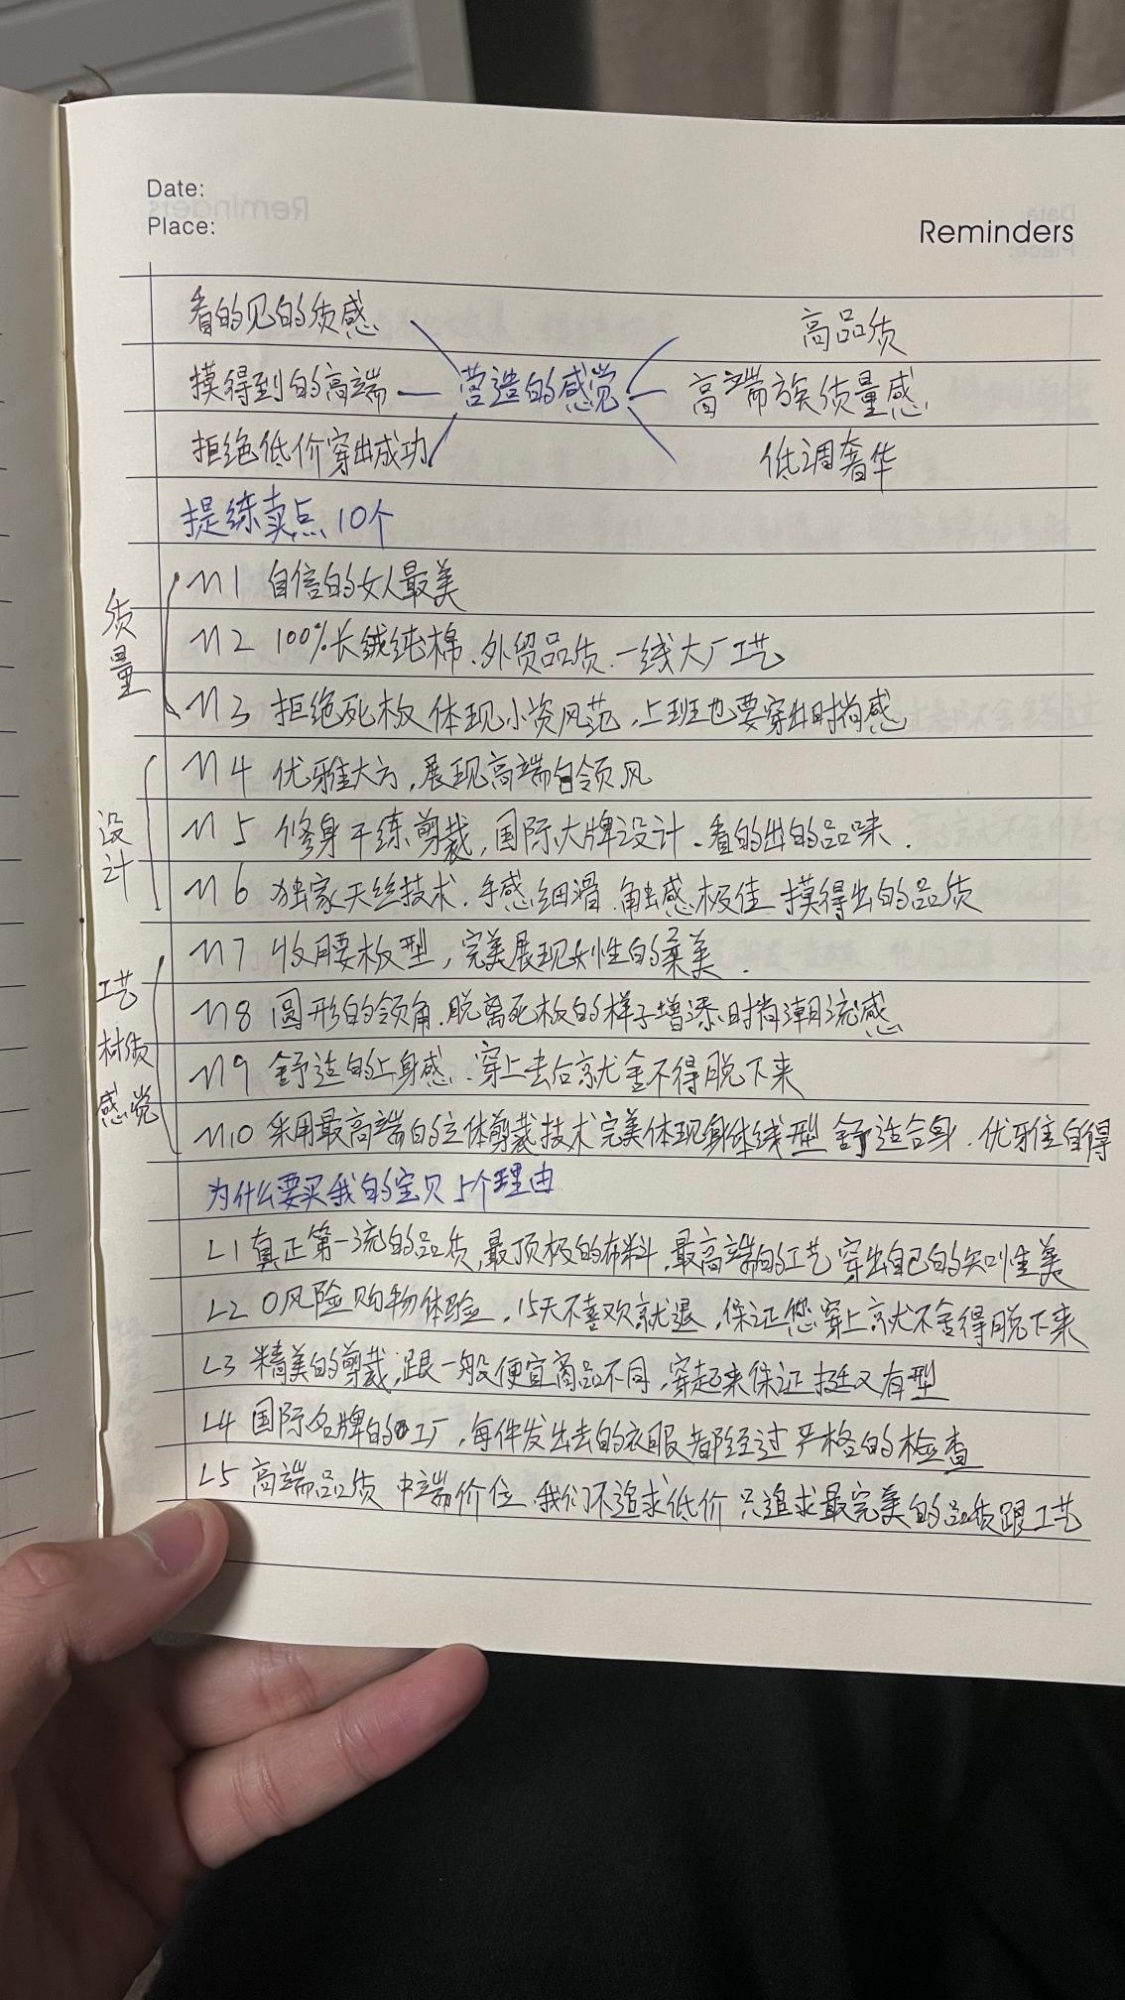 Date:
Place:
Reminders
看的见的质感
高品质
摸得到的高端 营造的感觉 高端族质量感
拒绝低价穿出成功
低调奢华
提练卖点10个
质量
n1 自信的女人最美
n2 100%长绒纯棉、外贸品质、一线大厂工艺
n3 拒绝死板体现小资风范,上班也要穿出时尚感
设计
n4 优雅大方,展现高端白领风
n5 修身干练剪裁,国际大牌设计、看的出的品味.
n6 独家天丝技术、手感细滑、触感极佳 摸得出的品质
工艺
材质
感觉
n7 收腰板型,完美展现女性的柔美.
n8 圆形的领角、脱离死板的样子增添时尚潮流感
n9 舒适的上身感、穿上去后就舍不得脱下来
n10 采用最高端的立体剪裁技术完美体现身体线型 舒适合身、优雅自得
为什么要买我的宝贝5个理由
L1 真正第一流的品质,最顶极的布料,最高端的工艺 穿出自己的知性美
L2 0风险购物体验,15天不喜欢就退,保证您穿上就不舍得脱下来
L3 精美的剪裁,跟一般便宜商品不同,穿起来保证挺又有型
L4 国际名牌的工厂,每件发出去的衣服都经过严格的检查
L5 高端品质 中端价位 我们不追求低价 只追求最完美的品质跟工艺